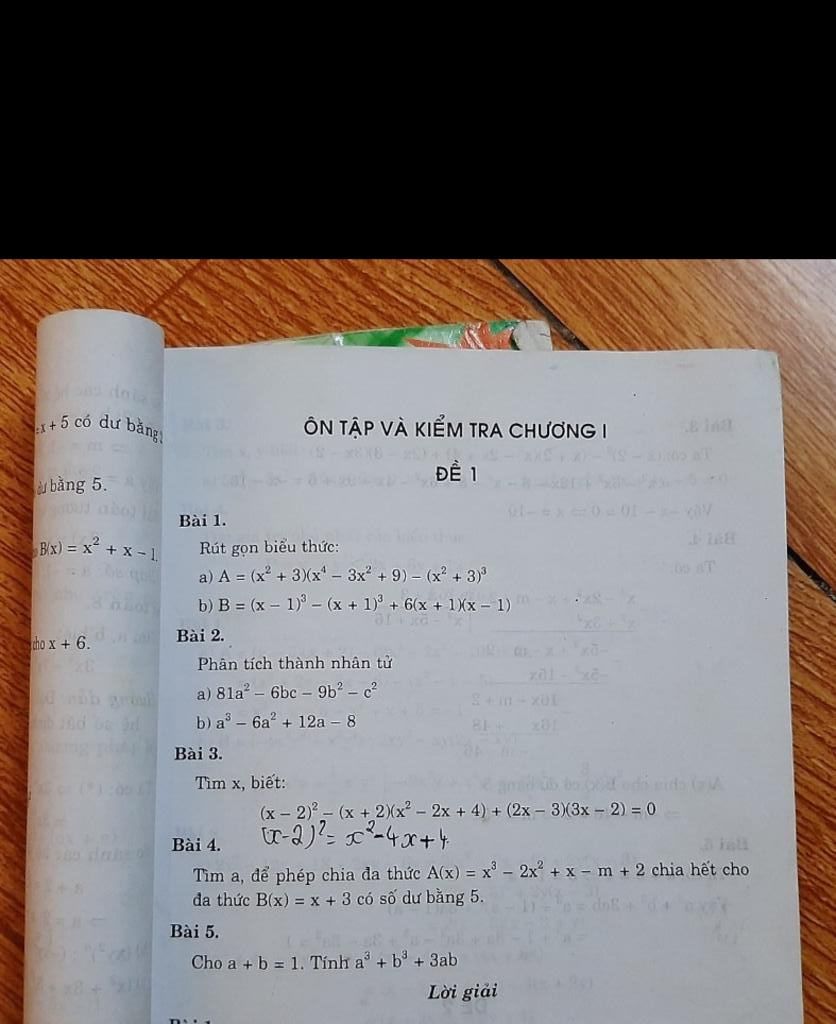 x + 5 có dư bằng
dư bằng 5.
B(x) = x² + x – 1.
cho x + 6.
ÔN TẬP VÀ KIỂM TRA CHƯƠNG I
ĐỀ 1
Bài 1.
Rút gọn biểu thức:
a) A = (x² + 3)(x⁴ – 3x² + 9) – (x² + 3)³
b) B = (x – 1)³ – (x + 1)³ + 6(x + 1)(x – 1)
Bài 2.
Phân tích thành nhân tử
a) 81a² – 6bc – 9b² – c²
b) a³ – 6a² + 12a – 8
Bài 3.
Tìm x, biết:
(x – 2)² – (x + 2)(x² – 2x + 4) + (2x – 3)(3x – 2) = 0
(x-2)² = x²-4x+4
Bài 4.
Tìm a, để phép chia đa thức A(x) = x³ – 2x² + x – m + 2 chia hết cho
đa thức B(x) = x + 3 có số dư bằng 5.
Bài 5.
Cho a + b = 1. Tính a³ + b³ + 3ab
Lời giải